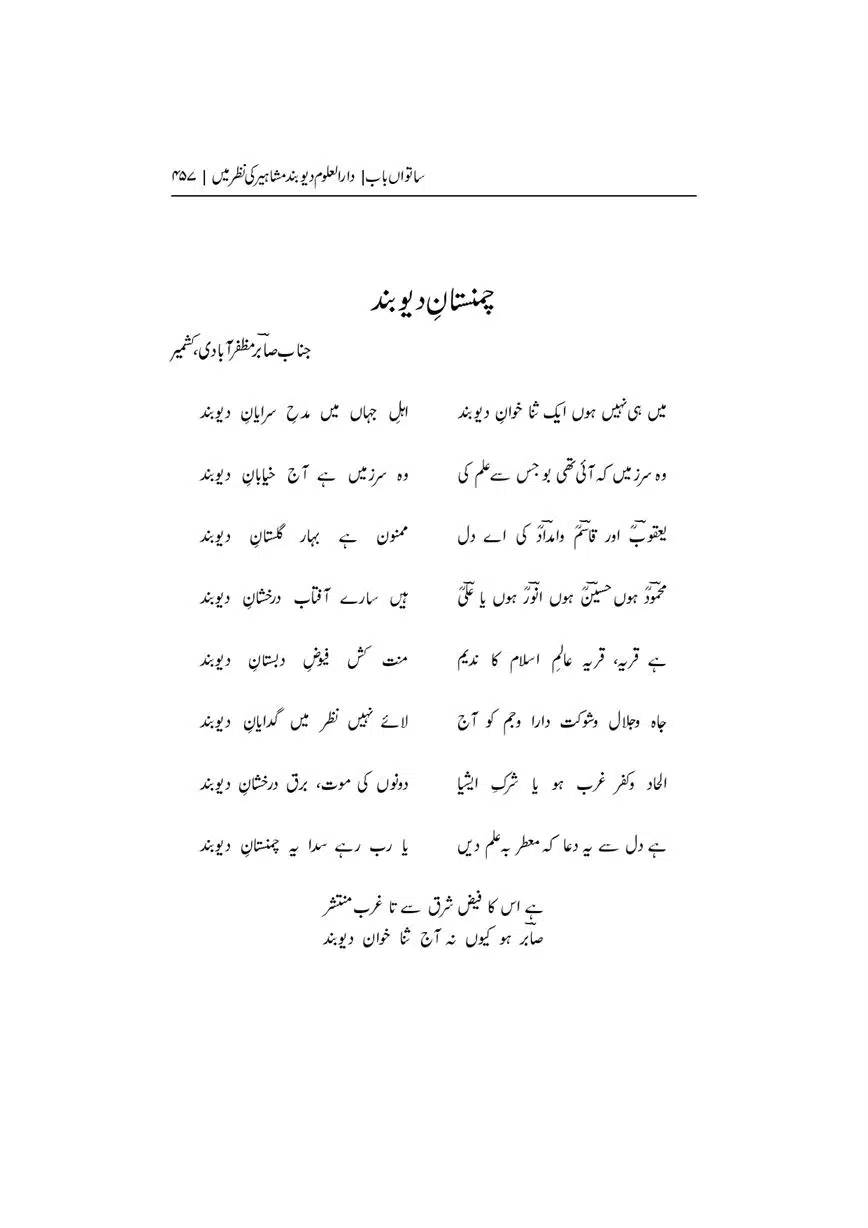 ساتواں باب | دارالعلوم دیوبند مشاہیر کی نظر میں | ۴۵۷
چمنستانِ دیوبند
جناب صابرؔ مظفرآبادی، کشمیر
میں ہی نہیں ہوں ایک ثنا خوانِ دیوبند اہلِ جہاں میں مدحِ سرایانِ دیوبند
وہ سرزمیں کہ آئی تھی بو جس سے علم کی وہ سرزمیں ہے آج خیابانِ دیوبند
یعقوبؒ اور قاسمؒ وامدادؒ کی اے دل ممنون ہے بہار گلستانِ دیوبند
محمودؒ ہوں حسینؒ ہوں انورؒ ہوں یا علیؒ ہیں سارے آفتاب درخشانِ دیوبند
ہے قریہ، قریہ عالمِ اسلام کا ندیم منت کش فیوضِ دبستانِ دیوبند
جاہ وجلال وشوکت دارا وجم کو آج لائے نہیں نظر میں گدایانِ دیوبند
الحاد وکفر غرب ہو یا شرکِ ایشیا دونوں کی موت، برق درخشانِ دیوبند
ہے دل سے یہ دعا کہ معطر بہ علم دیں یا رب رہے سدا یہ چمنستانِ دیوبند
ہے اس کا فیض شرق سے تا غرب منتشر
صابرؔ ہو کیوں نہ آج ثنا خوان دیوبند